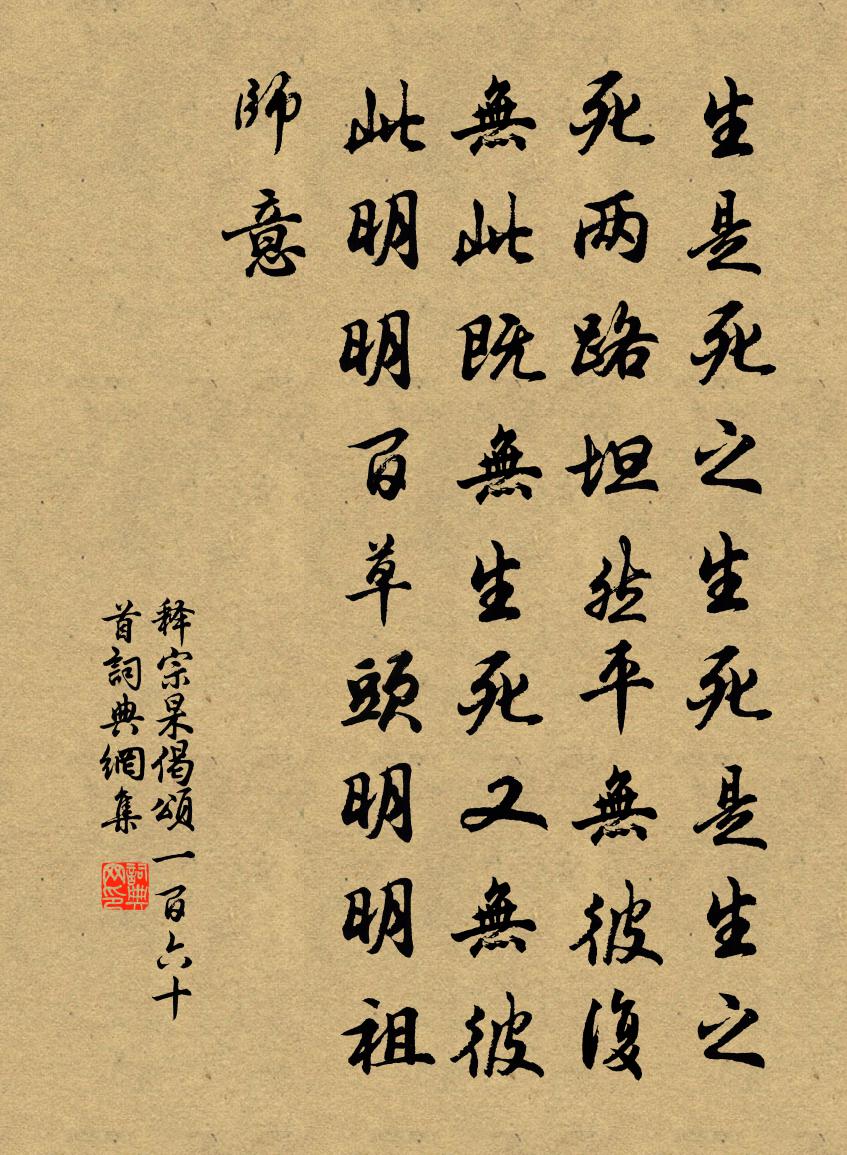 生是死之生死是生之
死两路坦然平無彼復
無此既無生死又無彼
此明明百草頭明明祖
師意
释宗杲偈頌一百六十
首詞典網集
詞典网印